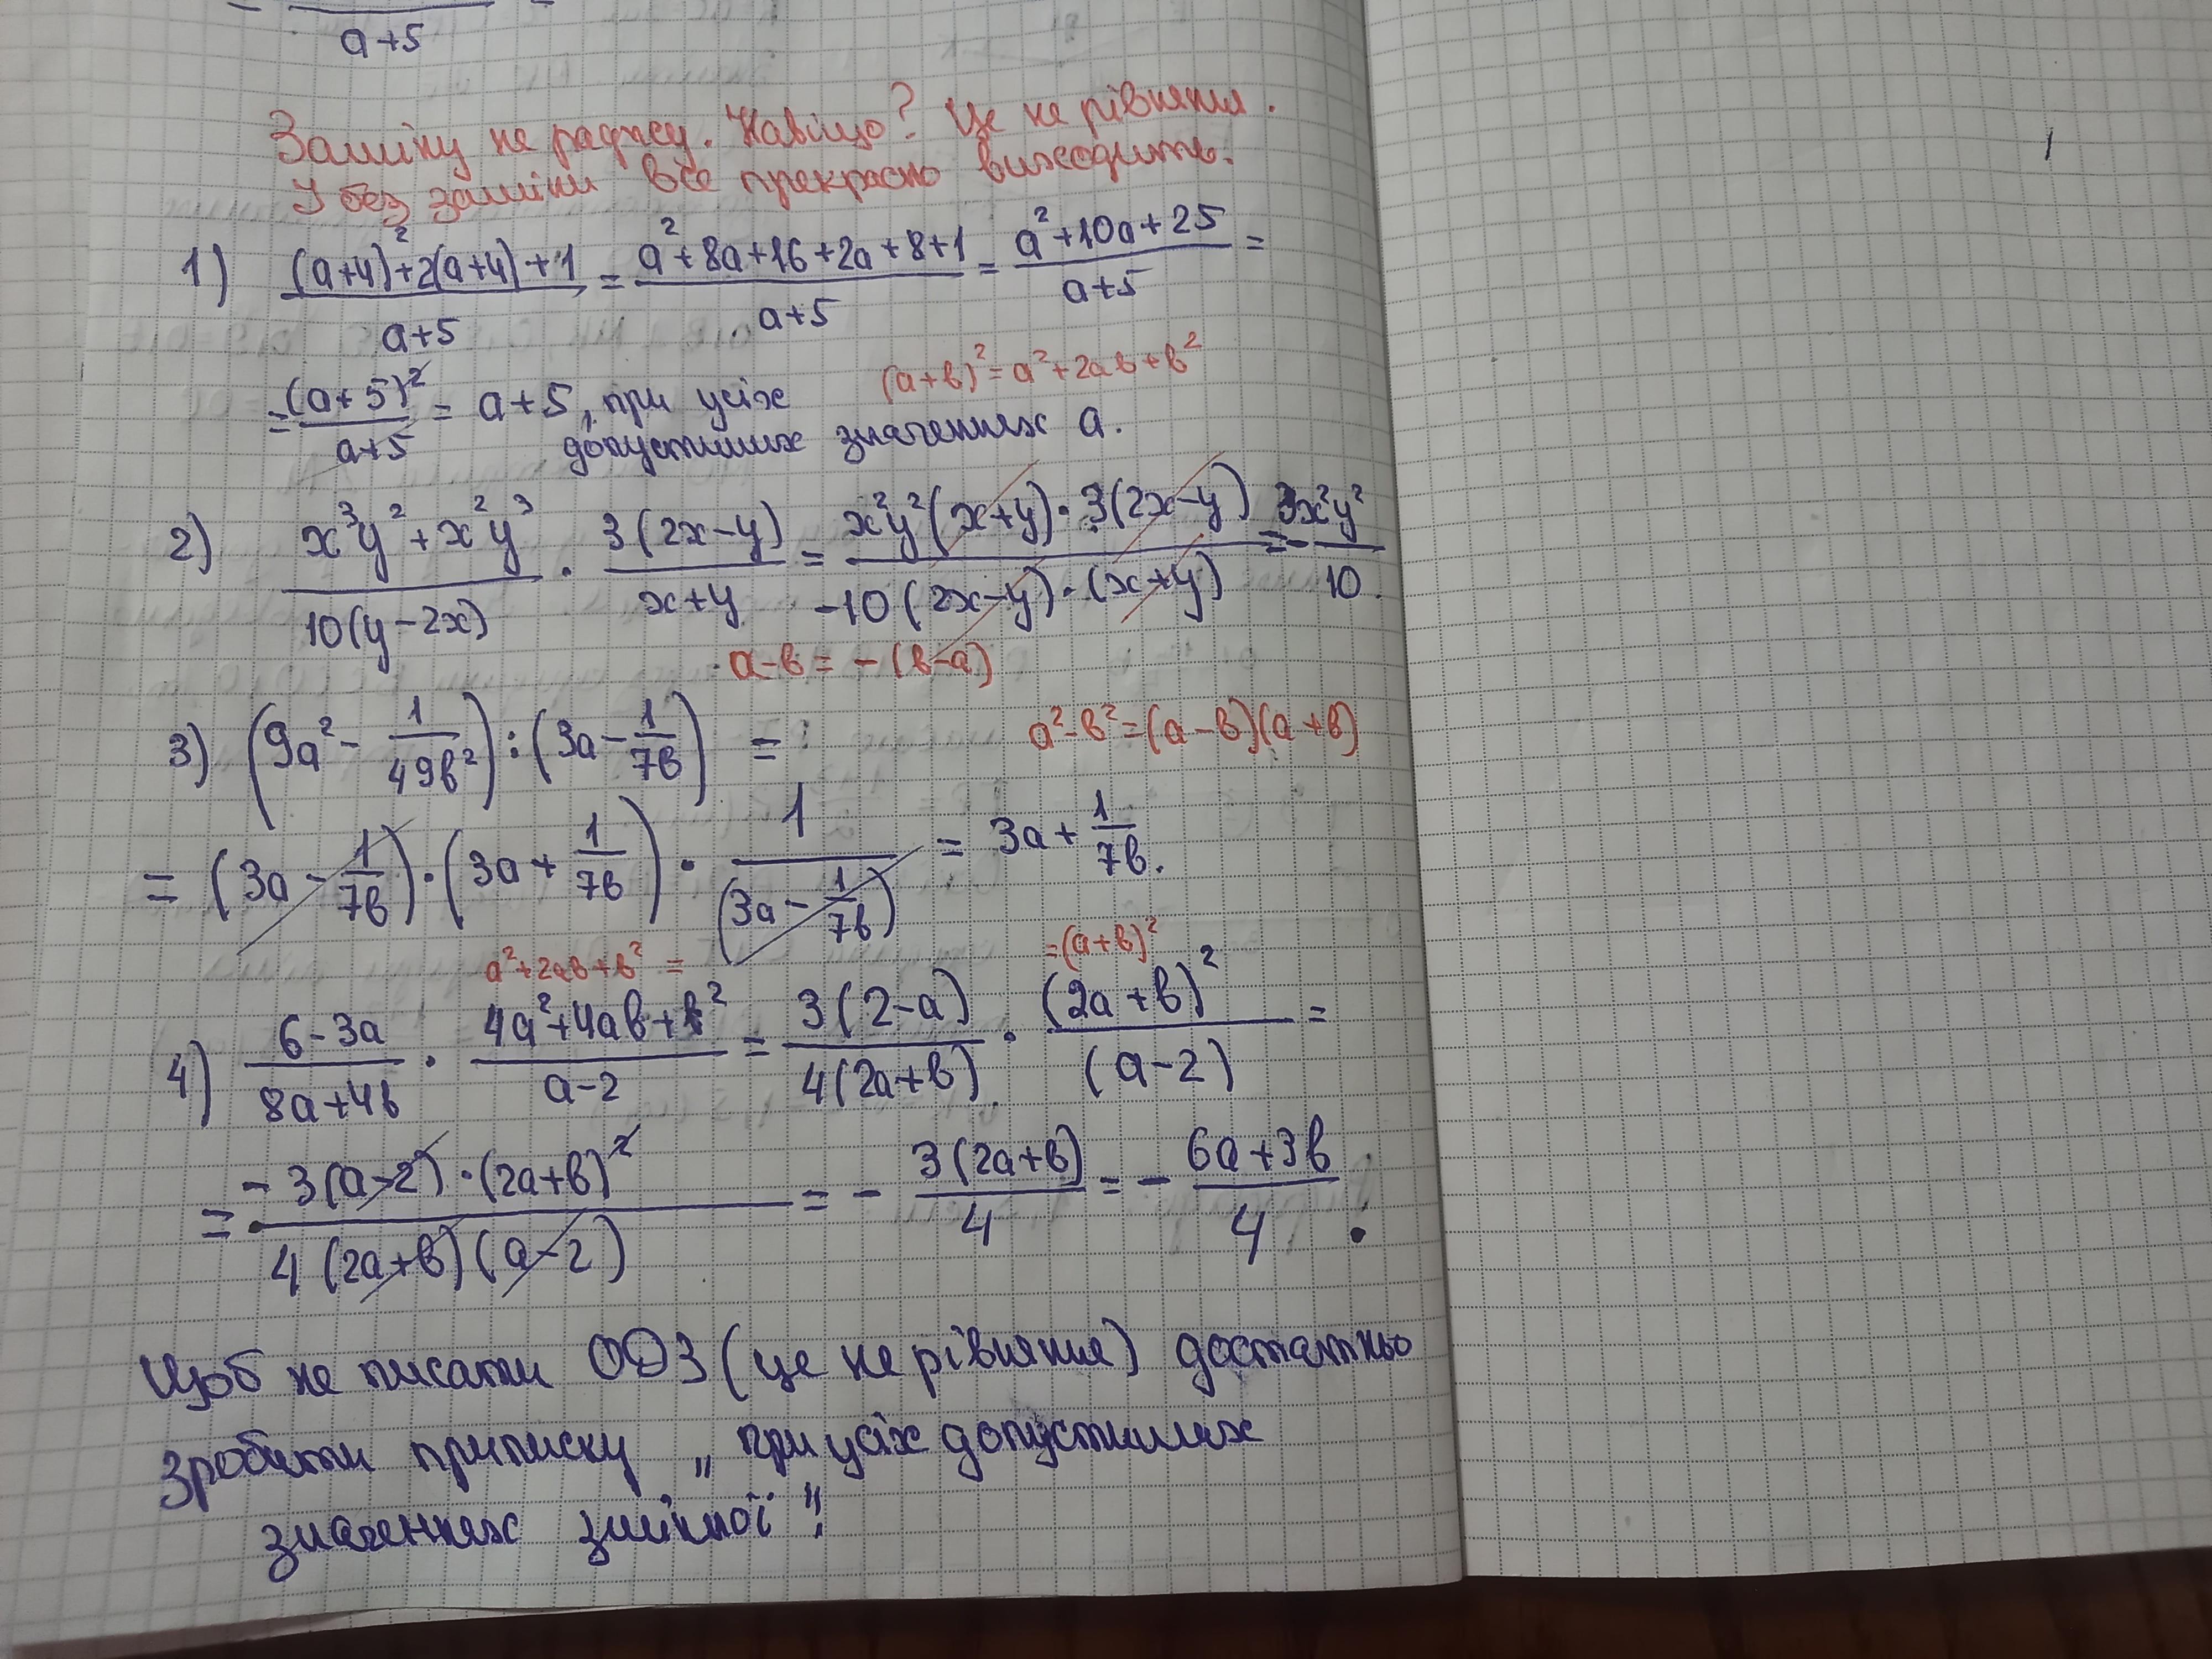 a+5
Заміну не раджу. Навіщо? Це не рівняння.
І без заміни все прекрасно виходить.
1) ((a+4)²+2(a+4)+1)/(a+5) = (a²+8a+16+2a+8+1)/(a+5) = (a²+10a+25)/(a+5) =
(a+b)²=a²+2ab+b²
= (a+5)²/(a+5) = a+5, при усіх
допустимих значеннях a.
2) (x³y²+x²y³)/(10(y-2x)) · (3(2x-y))/(x+y) = (x²y²(x+y)·3(2x-y))/(-10(2x-y)·(x+y)) = -3x²y²/10.
a-b = -(b-a)
3) (9a² - 1/(49b²)) : (3a - 1/(7b)) =
a²-b²=(a-b)(a+b)
= (3a - 1/(7b)) · (3a + 1/(7b)) · 1/(3a - 1/(7b)) = 3a + 1/(7b).
a²+2ab+b² = =(a+b)²
4) (6-3a)/(8a+4b) · (4a²+4ab+b²)/(a-2) = (3(2-a))/(4(2a+b)) · (2a+b)²/(a-2) =
= (-3(a-2)·(2a+b)²)/(4(2a+b)(a-2)) = - (3(2a+b))/4 = - (6a+3b)/4.
Щоб не писати ОДЗ (це не рівняння) достатньо
зробити приписку „при усіх допустимих
значеннях змінної".